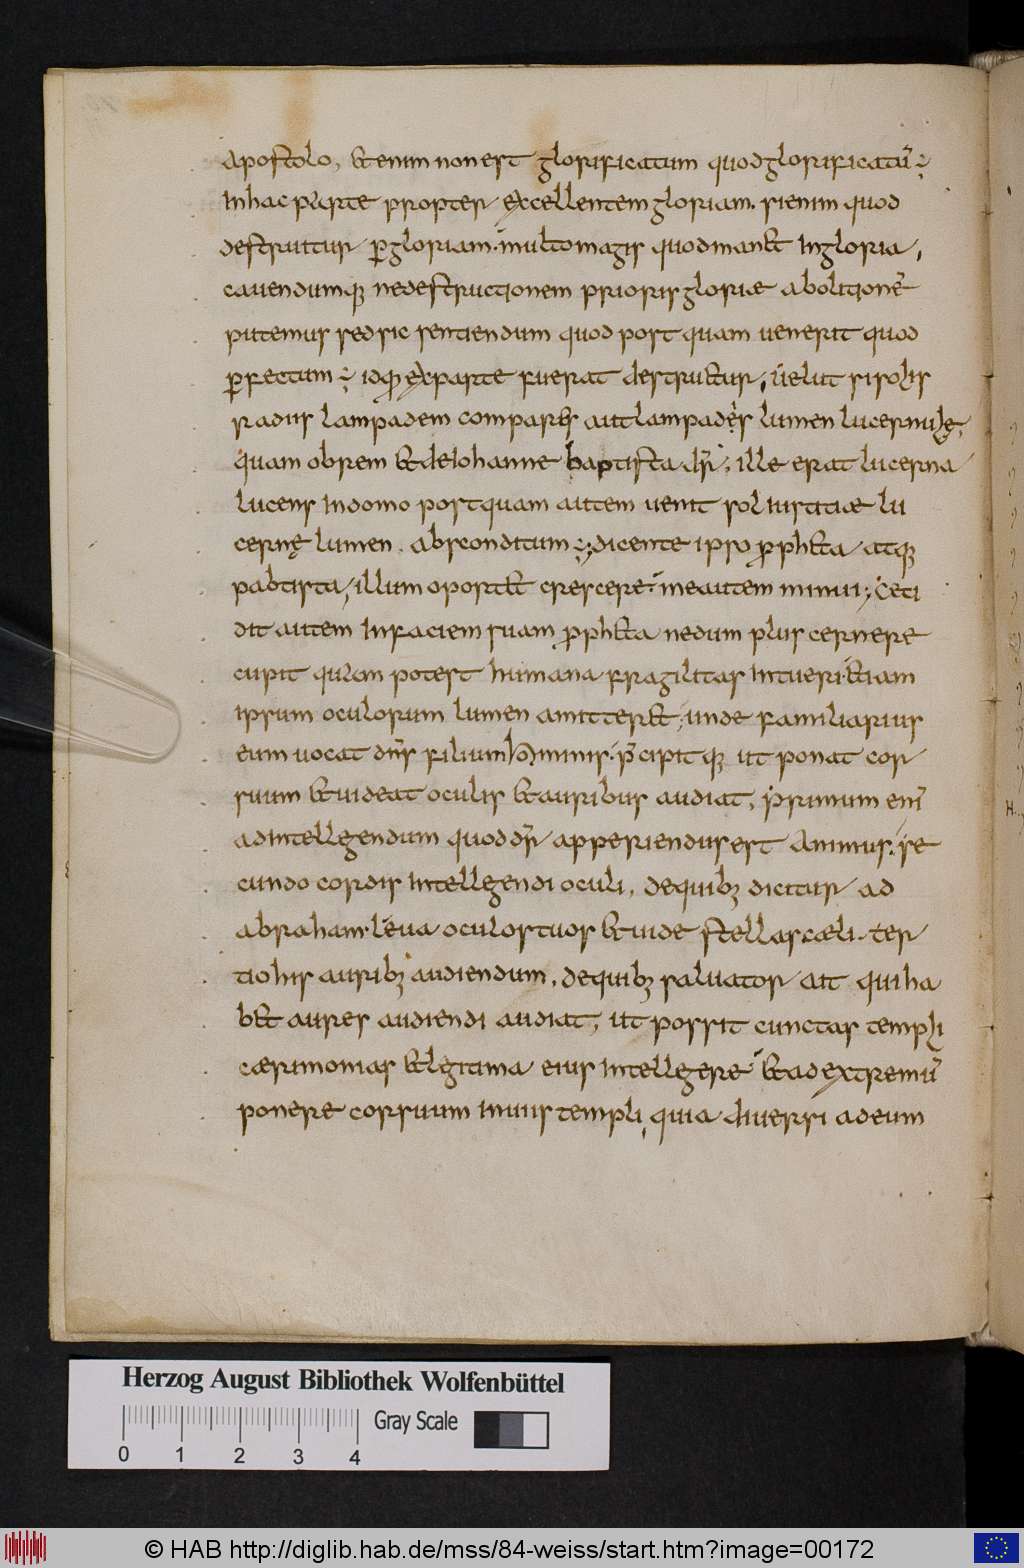 apostolo, & enim non est glorificatum quod glorificatū;
In hac parte propter excellentem gloriam. si enim quod
destruitur ꝑ gloriam. multo magis quod man& In gloria,
cavendumq; ne destructionem prioris gloriæ abolitionē
putemus sed sic sentiendum quod post quam uenerit quod
ꝑfectum; idq; ex parte fuerat destru&ur, uelut si solis
radiis lampadem compares aut lampadęs lumen lucernulę,
quam obrem & de Iohanne baptista dr̄; ille erat lucerna
lucens In domo postquam autem uenit sol iustitiæ lu
cernę lumen. absconditum; dicente ipso ꝓph&a atq;
pabtista, illum oport& crescere. me autem minui; Ceci
dit autem In faciem suam ꝓph&a ne dum plus cernere
cupit quam potest humana fragilitas Intueri. &iam
ipsum oculorum lumen amitter&; unde familiarius
eum uocat dn̄s filium hominis. p̄cipitq; ut ponat cor
suum & uideat oculis & auribus audiat, primum enī
ad Intellegendum quod dr̄ apperiendus est animus. se
cundo cordis Intellegendi oculi, de quib; dicitur ad
abraham. leua oculos tuos & uide stellas cæli. ter
tio his aurib; audiendum, de quib; saluator ait qui ha
b& aures audiendi audiat, ut possit cunctas templi
cærimonias & legitima eius Intellegere & ad extremū
ponere cor suum In uiis templi, quia diuersi ad eum
Herzog August Bibliothek Wolfenbüttel
Gray Scale
0 1 2 3 4
© HAB http://diglib.hab.de/mss/84-weiss/start.htm?image=00172